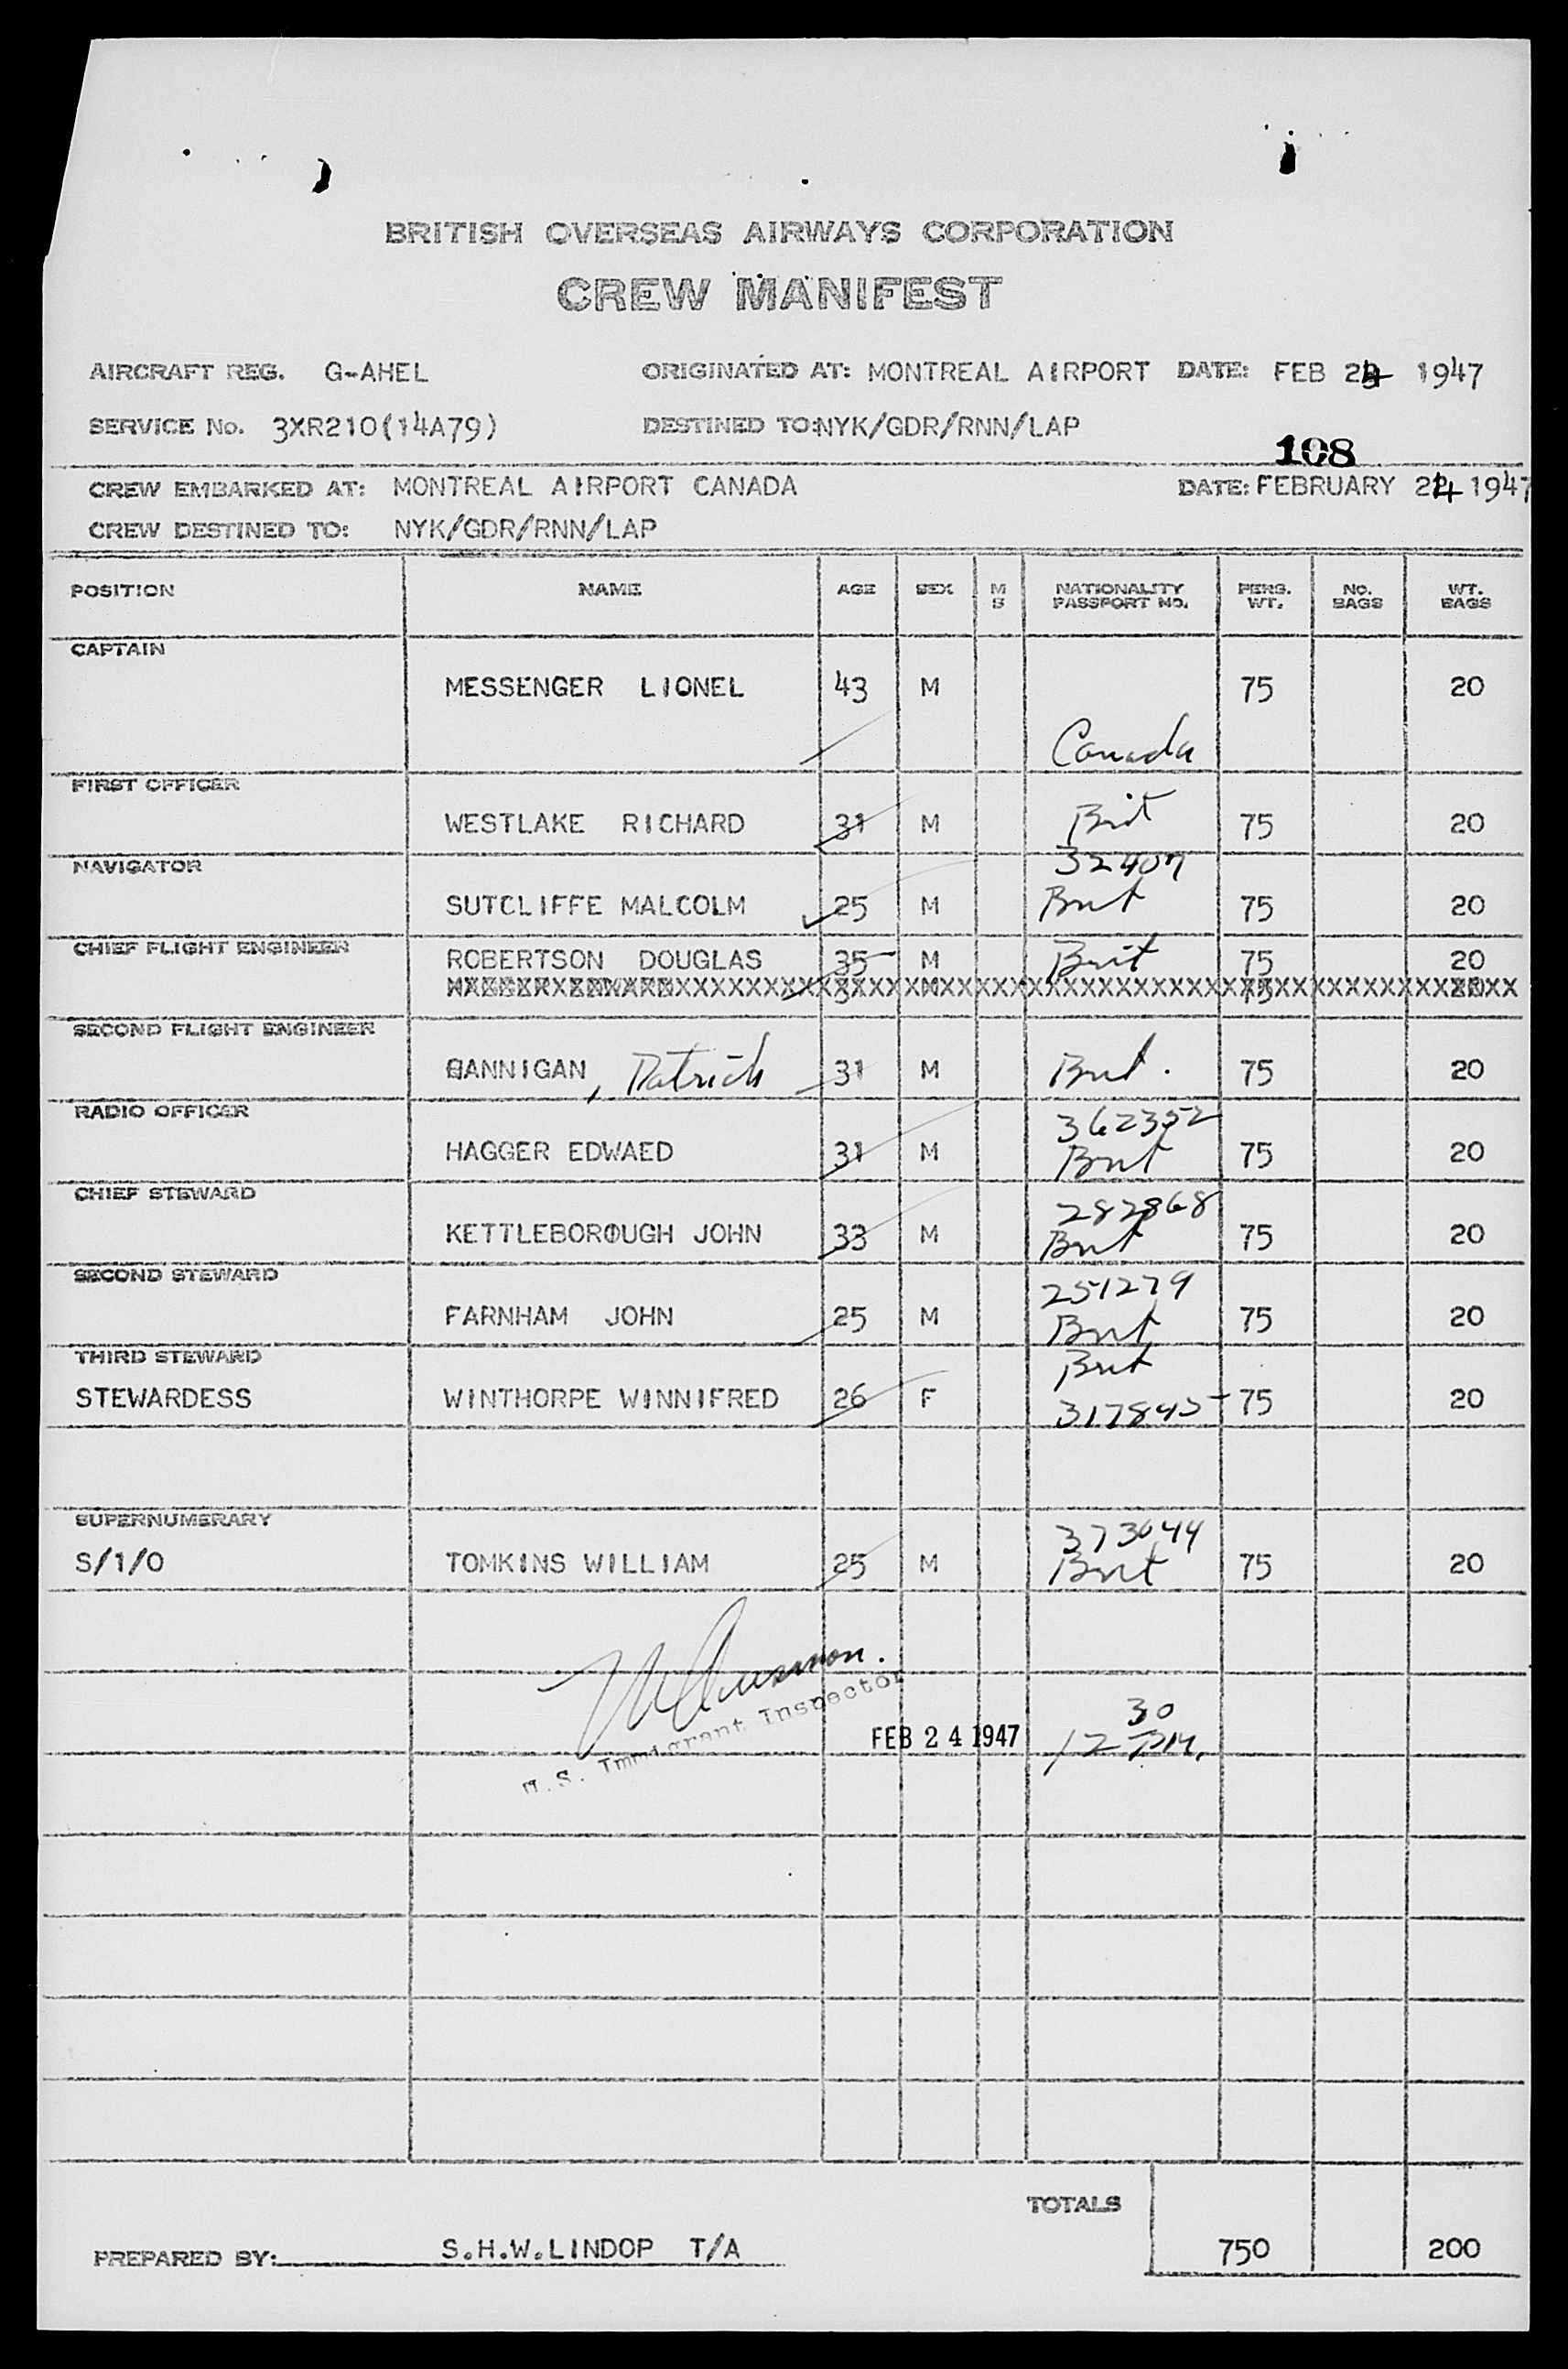 BRITISH OVERSEAS AIRWAYS CORPORATION
CREW MANIFEST
AIRCRAFT REG. G-AHEL ORIGINATED AT: MONTREAL AIRPORT DATE: FEB 24 1947
SERVICE No. 3XR210(14A79) DESTINED TO:NYK/GDR/RNN/LAP
108
CREW EMBARKED AT: MONTREAL AIRPORT CANADA DATE: FEBRUARY 24 1947
CREW DESTINED TO: NYK/GDR/RNN/LAP
POSITION NAME AGE SEX M S NATIONALITY PASSPORT NO. PERS. WT. NO. BAGS WT. BAGS
CAPTAIN
MESSENGER LIONEL 43 M 75 20
Canada
FIRST OFFICER
WESTLAKE RICHARD 31 M Brit 75 20
NAVIGATOR 32407
SUTCLIFFE MALCOLM 25 M Brit 75 20
CHIEF FLIGHT ENGINEER
ROBERTSON DOUGLAS 35 M Brit 75 20
SECOND FLIGHT ENGINEER
BANNIGAN, Patrick 31 M Brit. 75 20
RADIO OFFICER 362352
HAGGER EDWAED 31 M Brit 75 20
CHIEF STEWARD 282868
KETTLEBOROUGH JOHN 33 M Brit 75 20
SECOND STEWARD 251279
FARNHAM JOHN 25 M Brit 75 20
THIRD STEWARD Brit
STEWARDESS WINTHORPE WINNIFRED 26 F 317845 75 20
SUPERNUMERARY 373044
S/1/0 TOMKINS WILLIAM 25 M Brit 75 20
U.S. Immigrant Inspector
FEB 24 1947 12 30 P.M.
TOTALS
PREPARED BY: S.H.W.LINDOP T/A 750 200